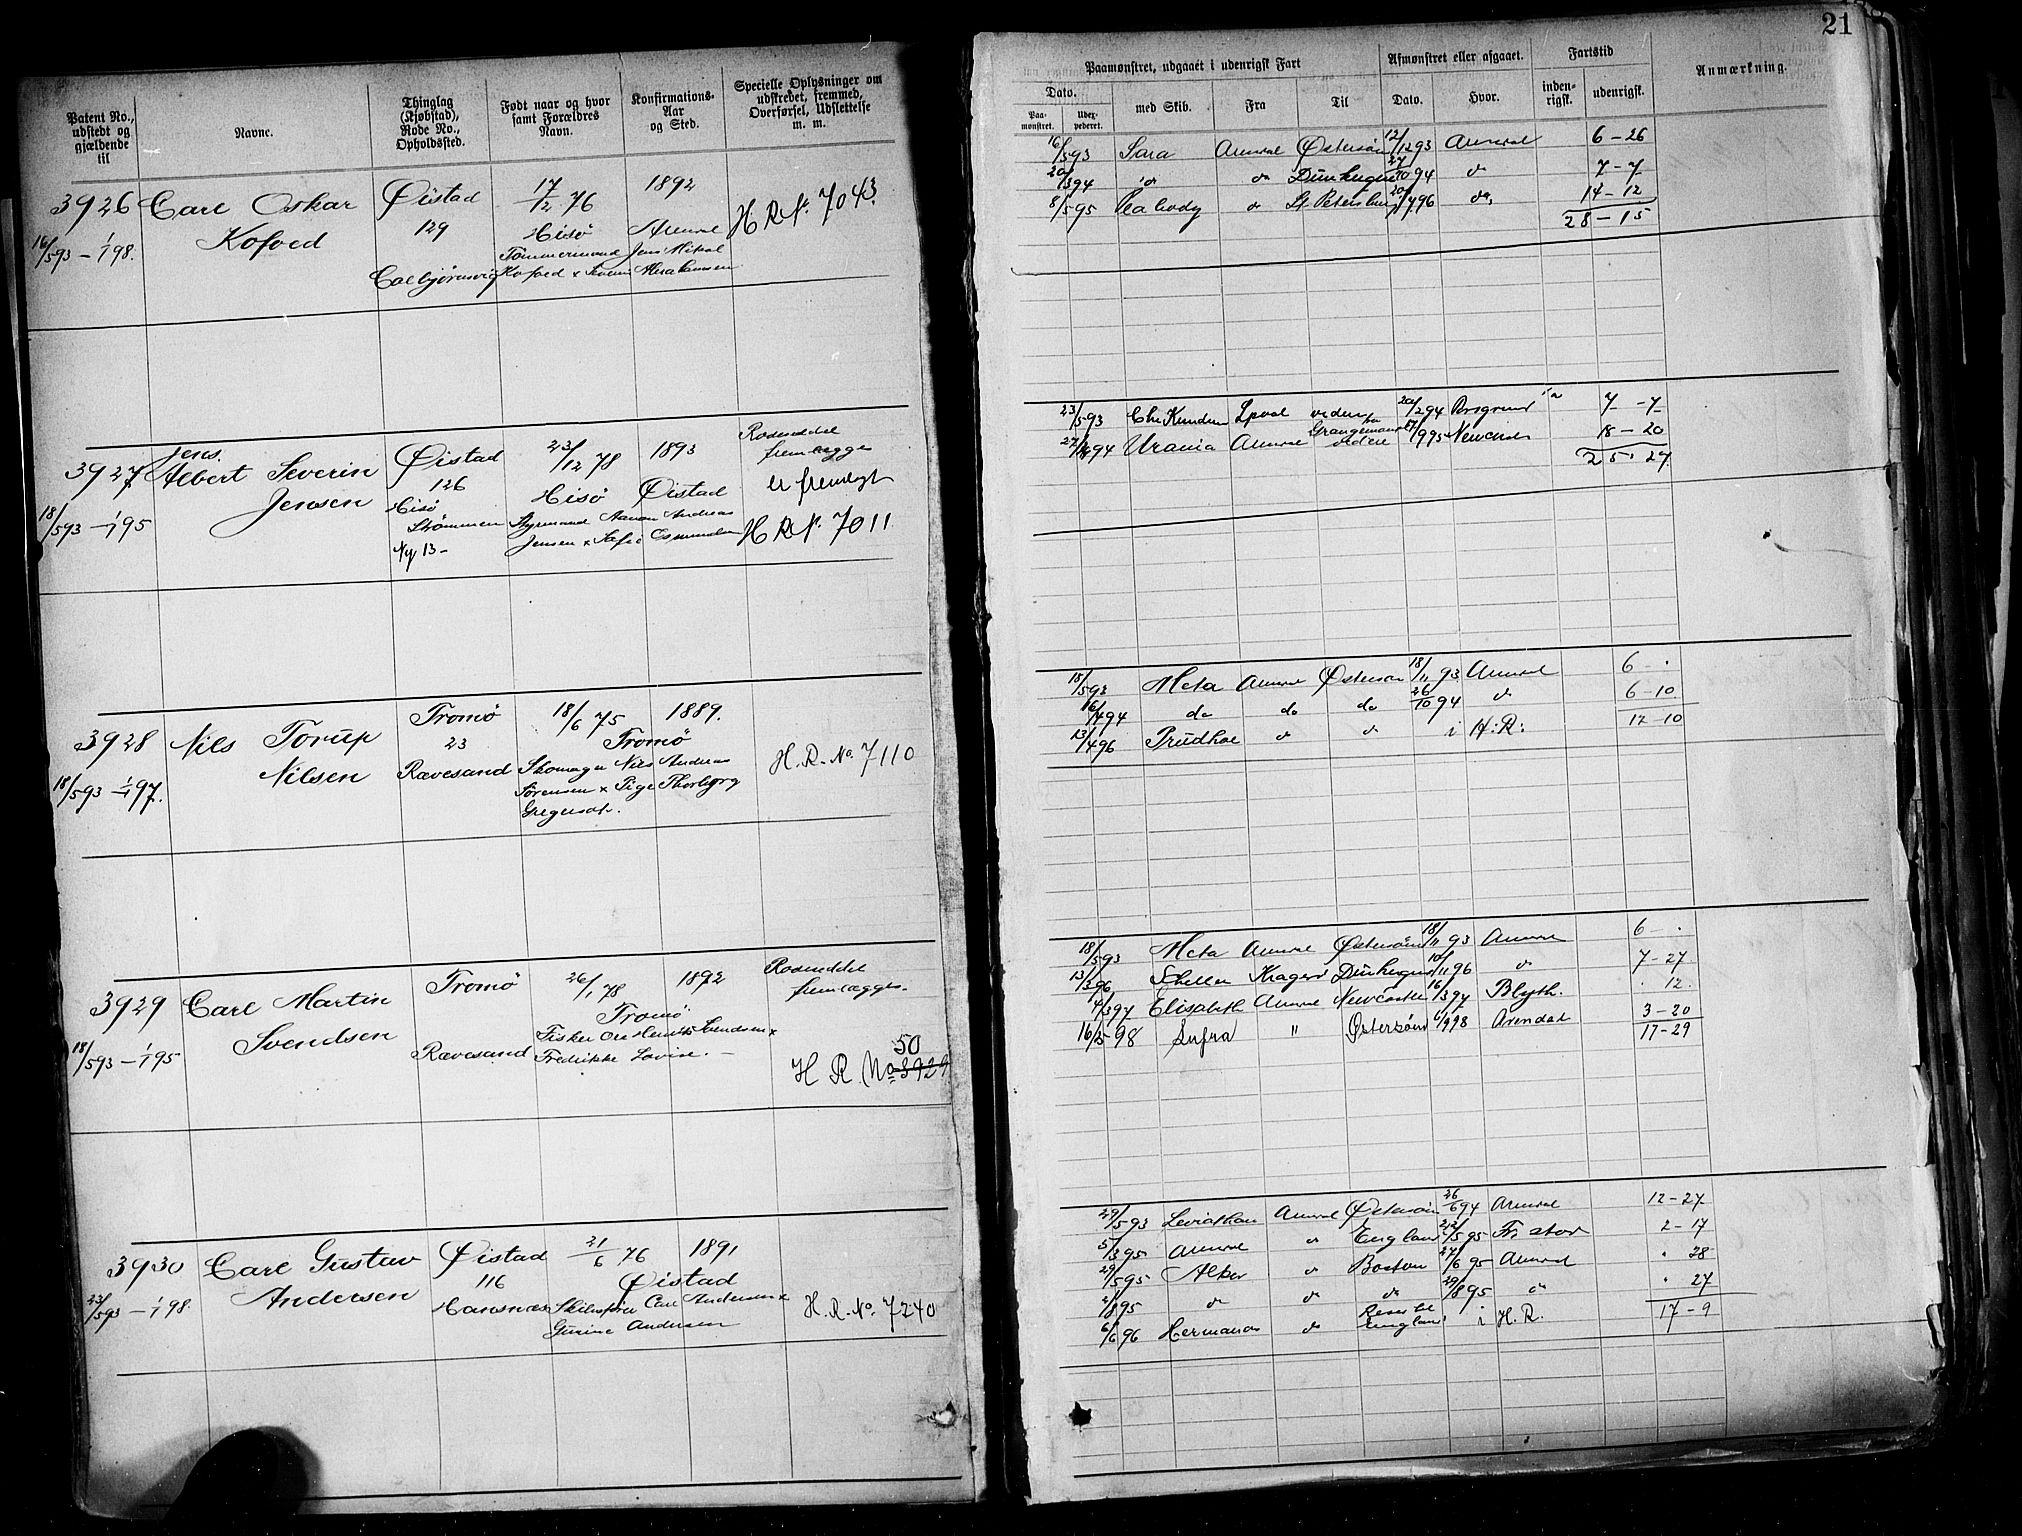 21
Patent No., udstedt og gjældende til
Navne.
Thinglag (Kjøbstad), Rode No., Opholdssted.
Født naar og hvor samt Forældres Navn.
Konfirmations-Aar og Sted.
Specielle Oplysninger om udskrevet, fremmed, Overførsel, Udslettelse m. m.
Paamønstret, udgaaet i udenrigsk Fart
Afmønstret eller afgaaet.
Fartstid
Anmærkning.
Dato.
Paa-mønstret.
Udex-pederet.
med Skib.
Fra
Til
Dato.
Hvor.
inden-rigsk.
udenrigsk.
3926 Carl Oskar Øistad 17/2 76 1892 H R N. 7043.
16/5 93 – 1/1 98. Kofoed 129 Hisø Arendal
Tømmermand Jens Mikal
Colbjørnsvig Kofoed x
16/5 93 Sara Arendal Østersøen 12/12 93 Arendal 6 – 26
20/3 94 do do Dünkerque 94 do 7 – 7
8/5 95 Peabody do St Petersburg 96 do, 14 – 12
28 – 15
Jens.
3927 Albert Severin Øistad 23/12 78 1893 Rodeseddel fremlægges
126 Hisø Øistad er fremlagt
18/5 93 – 1/1 95 Jensen Hisø Strømmen Styrmand Aanon Andreas H R N. 7011
Ny 13 – Jensen x Sofie
23/5 93 Chr Knudsen 20/2 94 Porsgrund 7 – 7
94 Urania Arendal 17/9 95 Newcastle 18 – 20
25 . 27
3928 Nils Torup Tromø 18/6 75 1889.
23 Tromø
18/5 93 – 1/1 97. Nilsen Rævesand Skomager Nils Andreas H. R. No. 7110
Sørensen x Thorborg
18/5 93 Meta Arendal Østersøen 18/11 93 Arendal 6 – .
16/4 94 do do do 26/10 94 do 6 – 10
13/4 96 Prudhoe do do i H. R: 12 – 10
3929 Carl Martin Tromø 26/1 78 1892 Rodeseddel fremlægges.
Tromø
18/5 93 – 1/1 95 Svendsen Rævesand Fisker Svendsen x
Fredrikke Lovise. –
50
H R No 3929
18/5 93 Meta Arendal Østersøen 18/11 93 Arendal 6 – .
13/3 96 Kragerø Dünkerque 10/11 96 do 7 – 27
1/3 97 Elisabeth Arendal Newcastle 16/3 97 Blyth. . 12.
16/5 – 98 Sufra " Østersøen 6/9 98 Arendal 3 – 20
17 – 29
3930 Carl Gustav Øistad 21/6 76 1891
116 Øistad
23/5 93 – 1/1 98. Andersen Hansnæs Carl Andersen x H. R. No. 7240
Gurine Andersen
29/5 93 Leviathan Arendal Østersøen 26/6 94 Arendal 12 – 27
5/3 95 Arendal do England 22/5 95 2 – 17
29/5 95 Alker do Boston 27/6 95 Arendal . 28
2/8 95 do do do 29/8 95 do . 27
6/6 96 Hermanos do England i H. R. 17 – 9